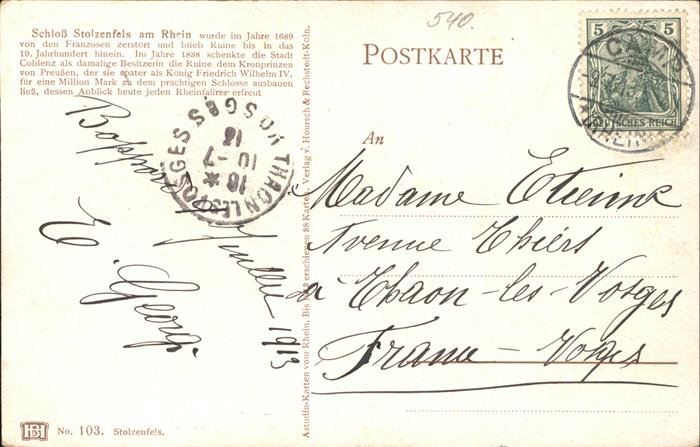 Schloß Stolzenfels am Rhein wurde im Jahre 1689
von den Franzosen zerstört und blieb Ruine bis in das
19. Jahrhundert hinein. Im Jahre 1838 schenkte die Stadt
Coblenz als damalige Besitzerin die Ruine dem Kronprinzen
von Preußen, der sie später als König Friedrich Wilhelm IV.
für eine Million Mark zu dem prächtigen Schlosse ausbauen
ließ, dessen Anblick heute jeden Rheinfahrer erfreut.
540.
POSTKARTE
5 5
DEUTSCHES REICH
(RHEIN)
THAON LES VOSGES
VOSGES
18
10 - 7
13
An
Madame Etienne
Avenue Thiers
à Thaon-les-Vosges
France - Vosges
Boppard Juillet 1913
E. Georg.
Astudin-Karten vom Rhein. Bis 1913 erschienen 38 Karten. Verlag v. Hoursch & Bechstedt-Köln.
HB
No. 103. Stolzenfels.